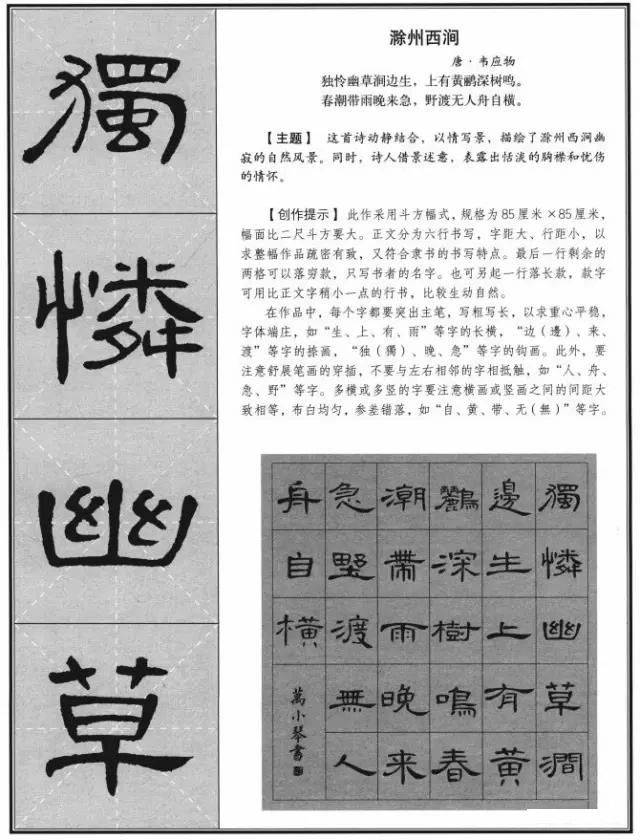 獨
憐
幽
草
滁州西涧
唐·韦应物
独怜幽草涧边生，上有黄鹂深树鸣。
春潮带雨晚来急，野渡无人舟自横。
【主题】 这首诗动静结合，以情写景，描绘了滁州西涧幽
寂的自然风景。同时，诗人借景述意，表露出恬淡的胸襟和忧伤
的情怀。
【创作提示】 此作采用斗方幅式，规格为85厘米×85厘米，
幅面比二尺斗方要大。正文分为六行书写，字距大、行距小，以
求整幅作品疏密有致，又符合隶书的书写特点。最后一行剩余的
两格可以落穷款，只写书者的名字。也可另起一行落长款，款字
可用比正文字稍小一点的行书，比较生动自然。
在作品中，每个字都要突出主笔，写框写长，以求重心平稳，
字体端庄，如“生、上、有、雨”等字的长横，“边（邊）、来、
渡”等字的捺画，“独（獨）、晚、急”等字的钩画。此外，要
注意舒展笔画的穿插，不要与左右相邻的字相抵触，如“人、舟、
急、野”等字。多横或多竖的字要注意横画或竖画之间的间距大
致相等，布白均匀，参差错落，如“自、黄、带、无（無）”等字。
獨憐幽草澗
邊生上有黃
鸝深樹鳴春
潮帶雨晚来
急野渡無人
舟自橫
萬小琴書